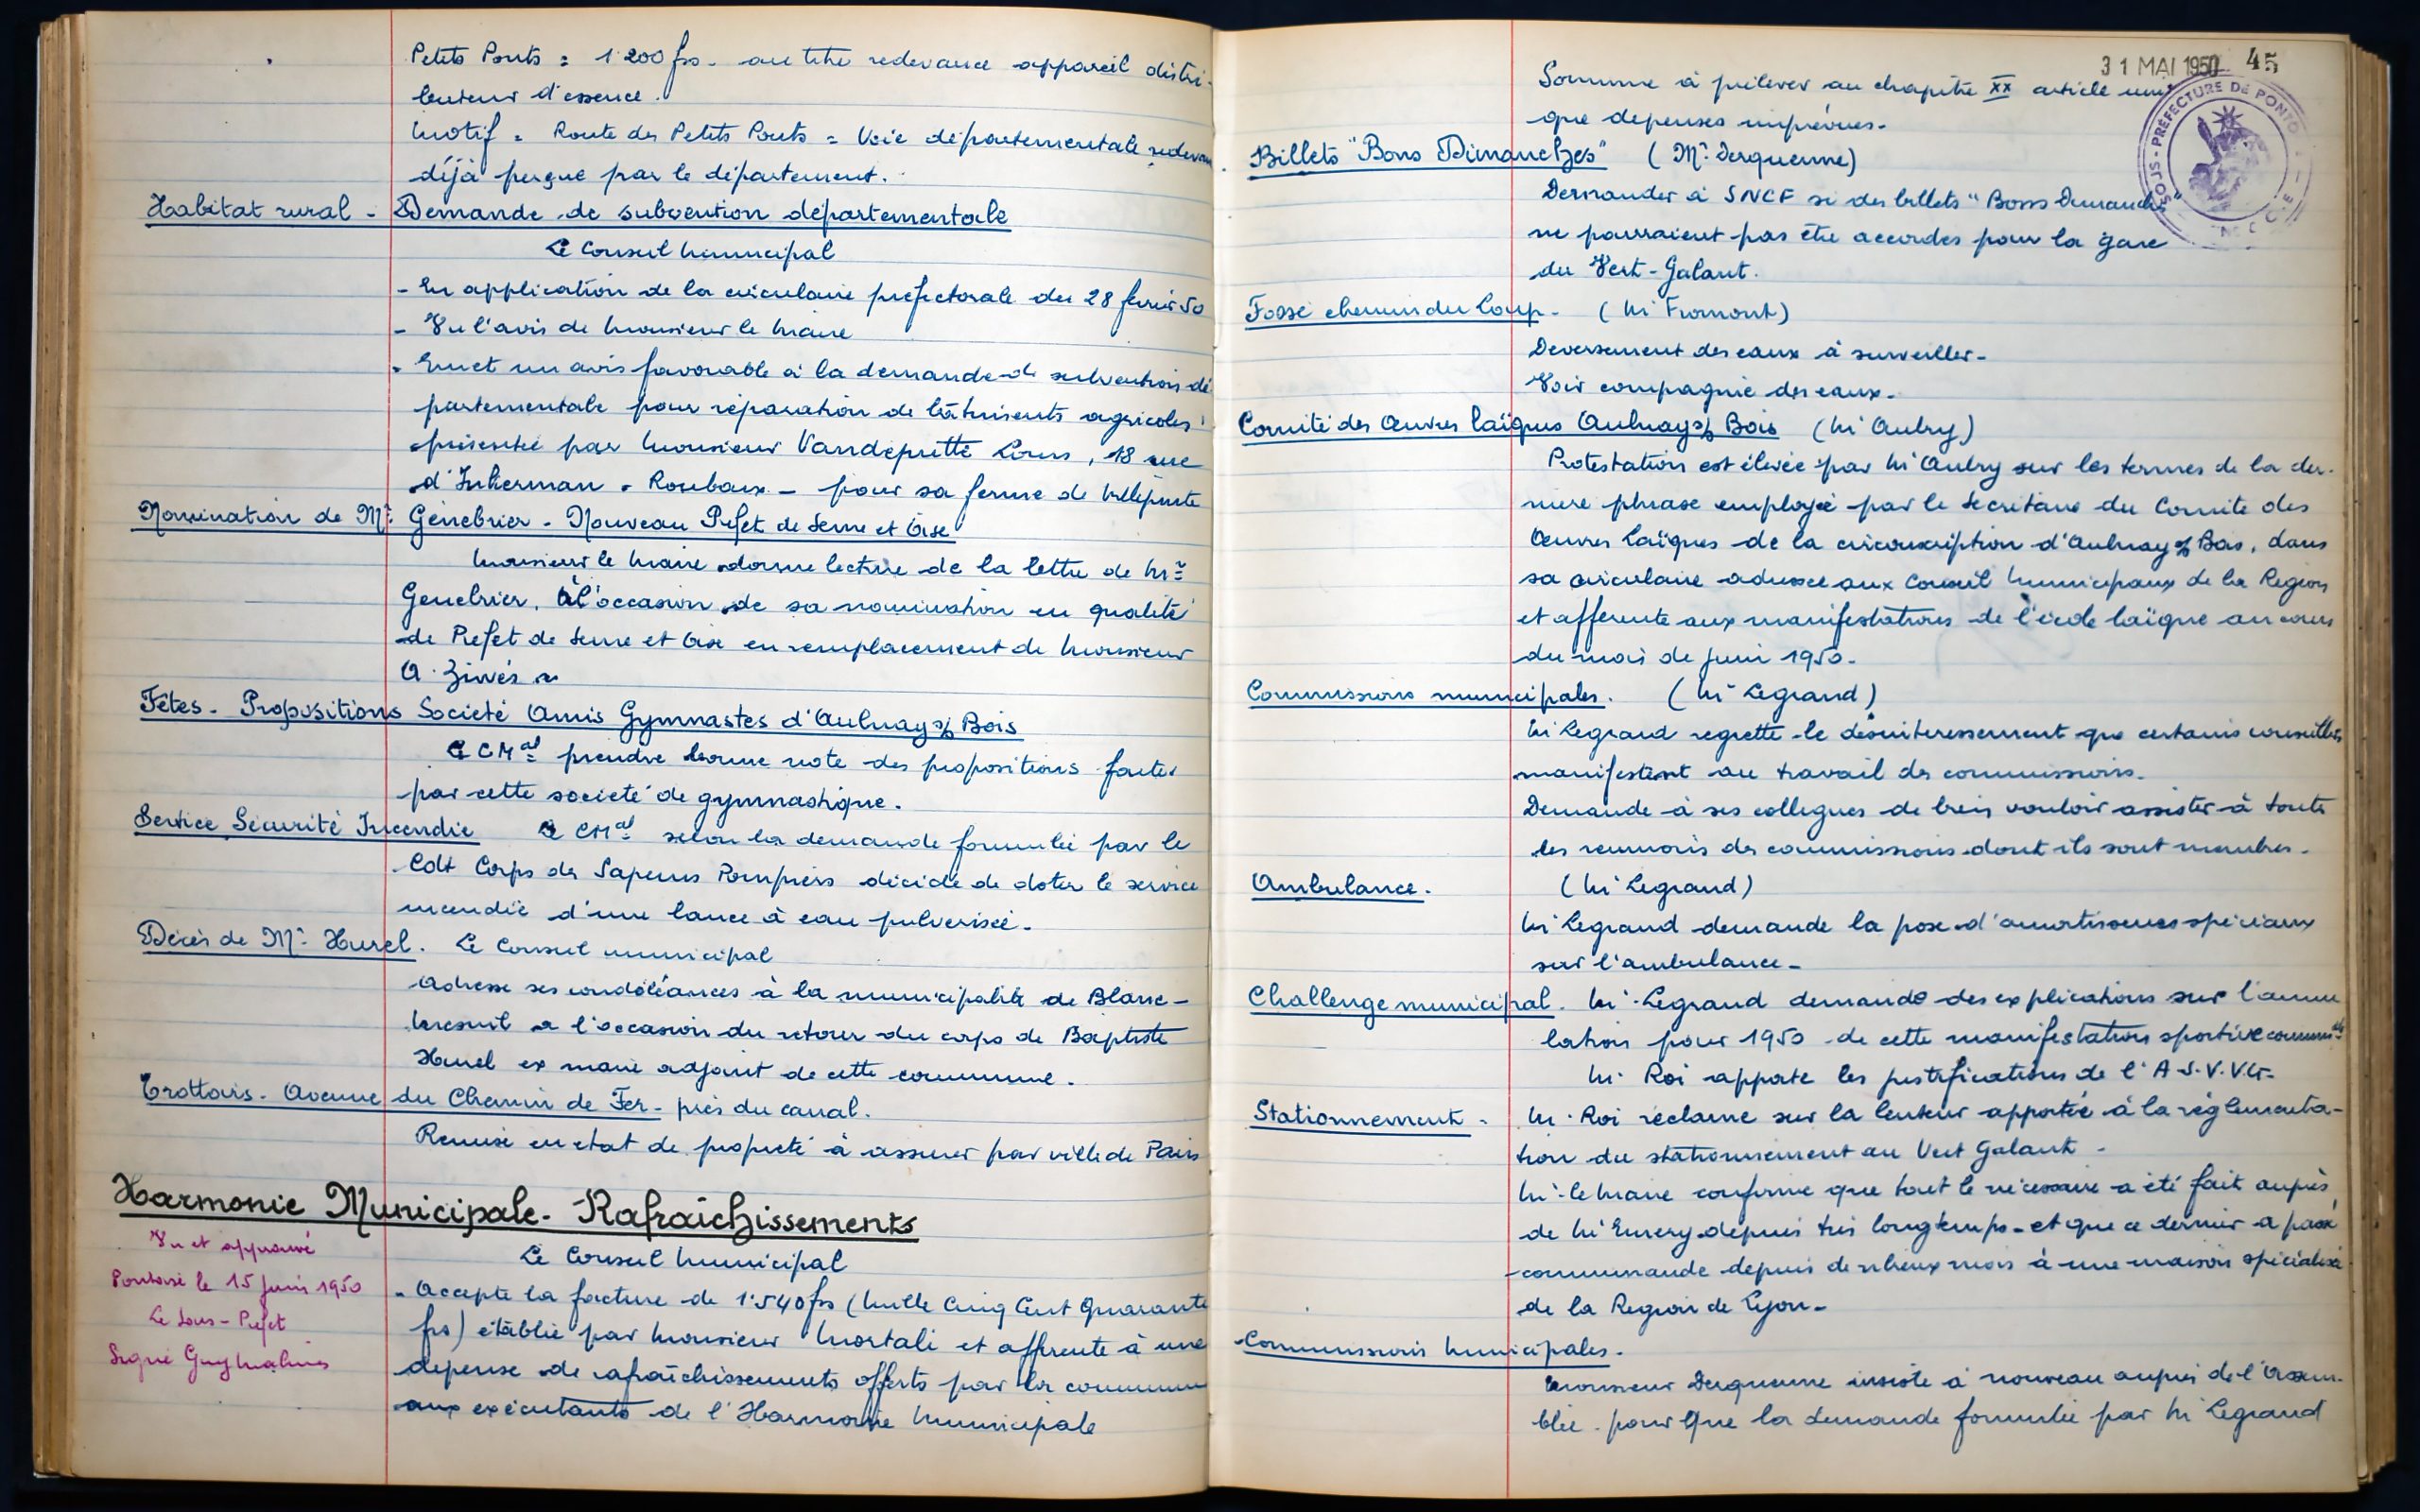 Petits Ponts = 1200 frs - au titre redevance appareil distri-
buteur d'essence.
Motif = Route des Petits Ponts = Voie départementale redevan
déjà perçue par le département.
Habitat rural - Demande de subvention départementale
Le Conseil Municipal
- En application de la circulaire préfectorale du 28 février 50
- Vu l'avis de Monsieur le Maire
- Emet un avis favorable à la demande de subvention dé
partementale pour réparation de bâtiments agricoles
présentée par Monsieur Vandeputte Louis, 18 rue
d'Inkerman - Roubaix - pour sa ferme de Villepinte
Nomination de Mr Génebrier - Nouveau Préfet de Seine et Oise
Monsieur le Maire donne lecture de la lettre de Mr
Genebrier, à l'occasion de sa nomination en qualité
de Préfet de Seine et Oise en remplacement de Monsieur
A. Zivvés
Fêtes - Propositions Société Amis Gymnastes d'Aulnay s/ Bois
Le CMal prendre bonne note des propositions faites
par cette société de gymnastique.
Service Sécurité Incendie Le CMal selon la demande formulée par le
Cdt Corps des Sapeurs Pompiers décide de doter le service
incendie d'une lance à eau pulvérisée.
Décès de Mr Hurel. Le Conseil municipal
Adresse ses condoléances à la municipalité de Blanc-
Mesnil à l'occasion du retour du corps de Baptiste
Hurel ex maire adjoint de cette commune.
Trottoirs - Avenue du Chemin de Fer - près du canal.
Remise en état de propreté à assurer par ville de Paris
Harmonie Municipale - Rafraîchissements
Vu et approuvé
Pontoise le 15 Juin 1950
Le Sous-Préfet
Signé Guy
Le Conseil Municipal
- Accepte la facture de 1.540 frs (Mille Cinq Cent Quarante
frs) établie par Monsieur Mortali et afférente à une
dépense de rafraîchissements offerts par la commune
aux exécutants de l'Harmonie Municipale
31 MAI 1950 45
SOUS-PRÉFECTURE DE PONTO
Somme à prélever au chapitre XX article uni
que dépenses imprévues.
Billets "Bons Dimanches" (Mr Derquenne)
Demander à SNCF si des billets "Bons Dimanche"
ne pourraient pas être accordés pour la gare
du Vert-Galant.
Fossé chemin du Loup - (Mr Fromont)
Deversement des eaux à surveiller -
Voir compagnie des eaux.
Comité des Œuvres laïques Aulnay s/ Bois (Mr Aubry)
Protestation est élevée par Mr Aubry sur les termes de la der-
nière phrase employée par le Secrétaire du Comité des
Œuvres Laïques de la circonscription d'Aulnay s/ Bois, dans
sa circulaire adressée aux Conseil Municipaux de la Région
et afférente aux manifestations de l'école laïque au cours
du mois de Juin 1950.
Commissions municipales. (Mr Legrand)
Mr Legrand regrette le désintéressement que certains conseillers
manifestent au travail des commissions.
Demande à ses collègues de bien vouloir assister à toute
les réunions des commissions dont ils sont membres.
Ambulance. (Mr Legrand)
Mr Legrand demande la pose d'amortisseurs spéciaux
sur l'ambulance -
Challenge municipal. Mr Legrand demande des explications sur l'annu
lation pour 1950 de cette manifestation sportive communale
Mr Roi apporte les justifications de l'A.S.V.V.G.
Stationnement - Mr Roi réclame sur la lenteur apportée à la réglementa-
tion du stationnement au Vert Galant -
Mr le Maire confirme que tout le nécessaire a été fait auprès
de Mr Emery depuis très longtemps - et que ce dernier a passé
commande depuis de nbreux mois à une maison spécialisée
de la Région de Lyon -
Commissions Municipales.
Monsieur Derquenne insiste à nouveau auprès de l'Assem-
blée pour que la demande formulée par Mr Legrand